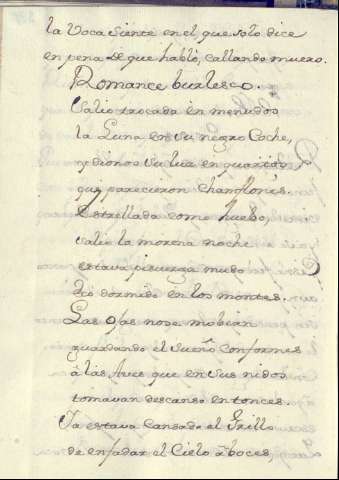 la Voca siente en el que solo dice
en pena de que habló, callando muero.
Romance burlesco.
Salio trocada en menudos
la Luna en su negro Coche,
y dionos su luz en quartos
que parecieron chanflones.
Estrellada como huebo,
salio la morena noche
estava pisuerga mudo
Eco dormido en los montes.
Las ojas no se mobian
guardando el sueño conformes
à las Aves que en sus nidos
tomavan descanso entonces.
Ya estava cansado el Grillo
de enfadar el Cielo à boces,